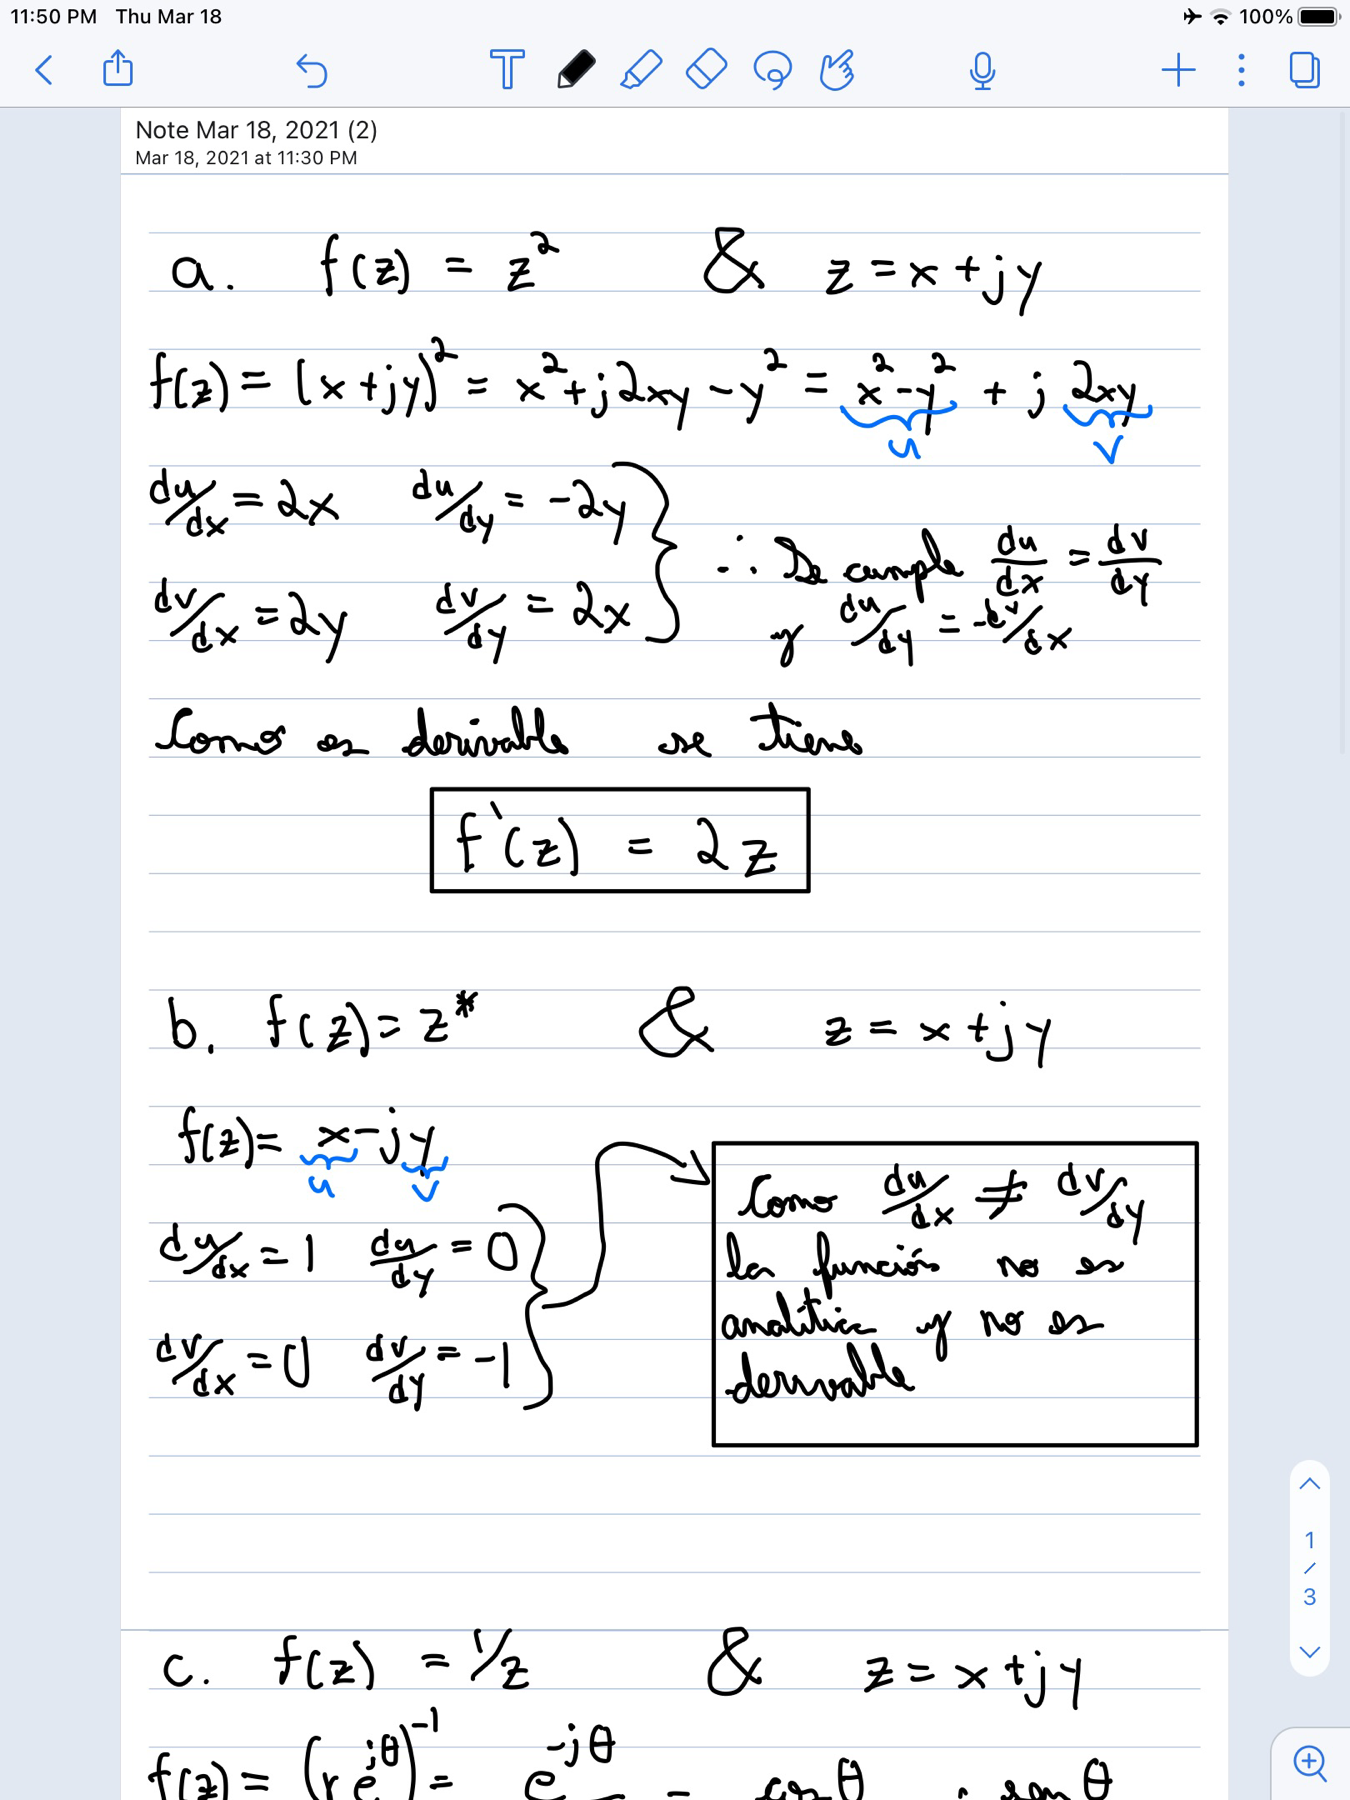 11:50 PM Thu Mar 18 100%
T
Note Mar 18, 2021 (2)
Mar 18, 2021 at 11:30 PM
a. f(z) = z² & z = x + jy
f(z) = (x + jy)² = x² + j2xy - y² = x² - y² + j 2xy
u v
du/dx = 2x du/dy = -2y
∴ Se cumple du/dx = dv/dy
dv/dx = 2y dv/dy = 2x
y du/dy = -dv/dx
Como es derivable se tiene
f'(z) = 2z
b. f(z) = z* & z = x + jy
f(z) = x - jy
u v
du/dx = 1 du/dy = 0
dv/dx = 0 dv/dy = -1
Como du/dx ≠ dv/dy
la función no es
analítica y no es
derivable
1
/
3
c. f(z) = 1/z & z = x + jy
f(z) = (r e^jθ)^-1 = e^-jθ = cos θ j sen θ